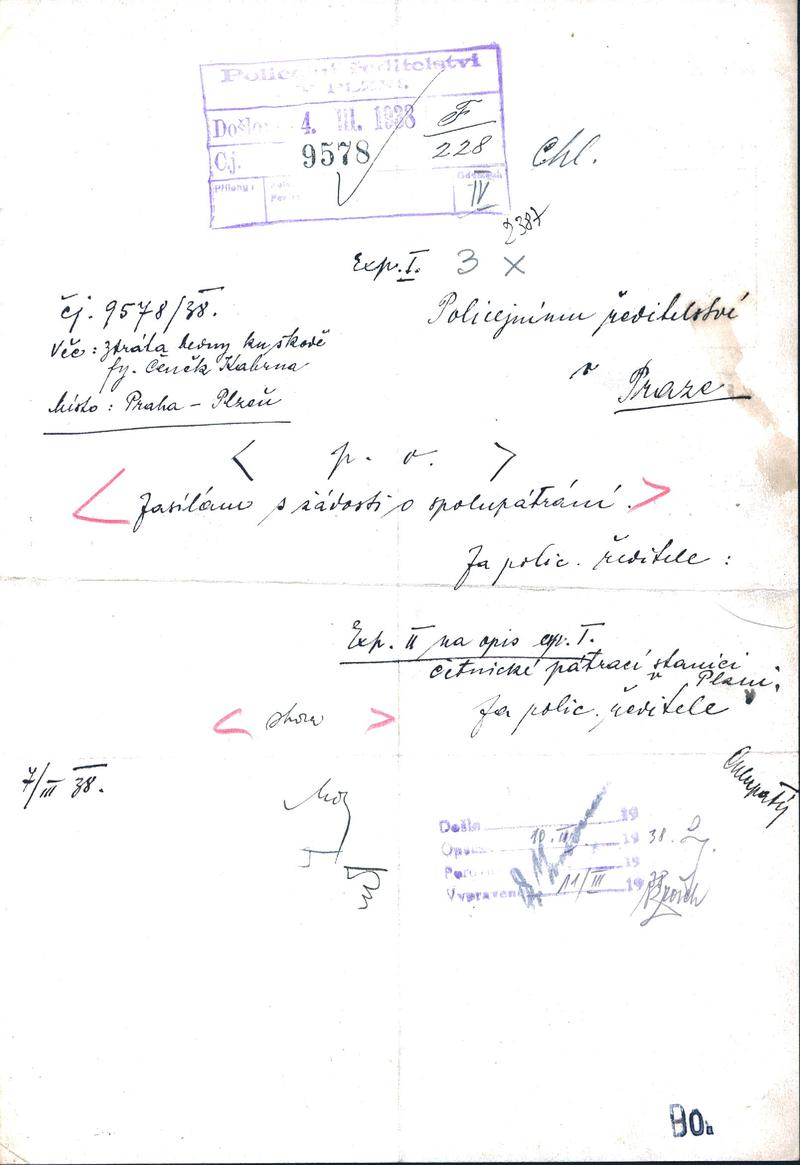 Policejní ředitelství
v PLZNI.
Došlo: 4. III. 1938
F
228
Čj. 9578
Přílohy:
IV
Chl.
2387
Exp. I. 3 x
čj. 9578/38.
Policejnímu ředitelství
Věc: ztráta bedny
fy. Čeněk Kabrna
v
Praze
Místo: Praha – Plzeň
< p. o. >
< Zasílám s žádostí o spolupátrání. >
Za polic. ředitele:
Exp. II na opis exp. I.
četnické pátrací stanici
v Plzni.
< shora >
Za polic. ředitele
7/III 38.
Došlo 19
10. III 19 38.
19
Vypraveno 11/III 19 38
Bo.